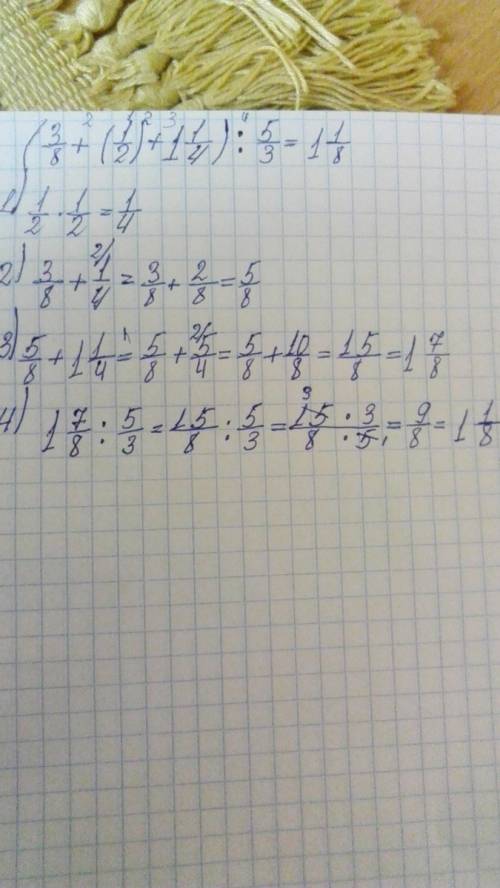 (3/8 + (1/2)² + 1 1/4) : 5/3 = 1 1/8
1) 1/2 · 1/2 = 1/4
2) 3/8 + 1/4 = 3/8 + 2/8 = 5/8
3) 5/8 + 1 1/4 = 5/8 + 5/4 = 5/8 + 10/8 = 15/8 = 1 7/8
4) 1 7/8 : 5/3 = 15/8 : 5/3 = 15 · 3 / 8 · 5 = 9/8 = 1 1/8